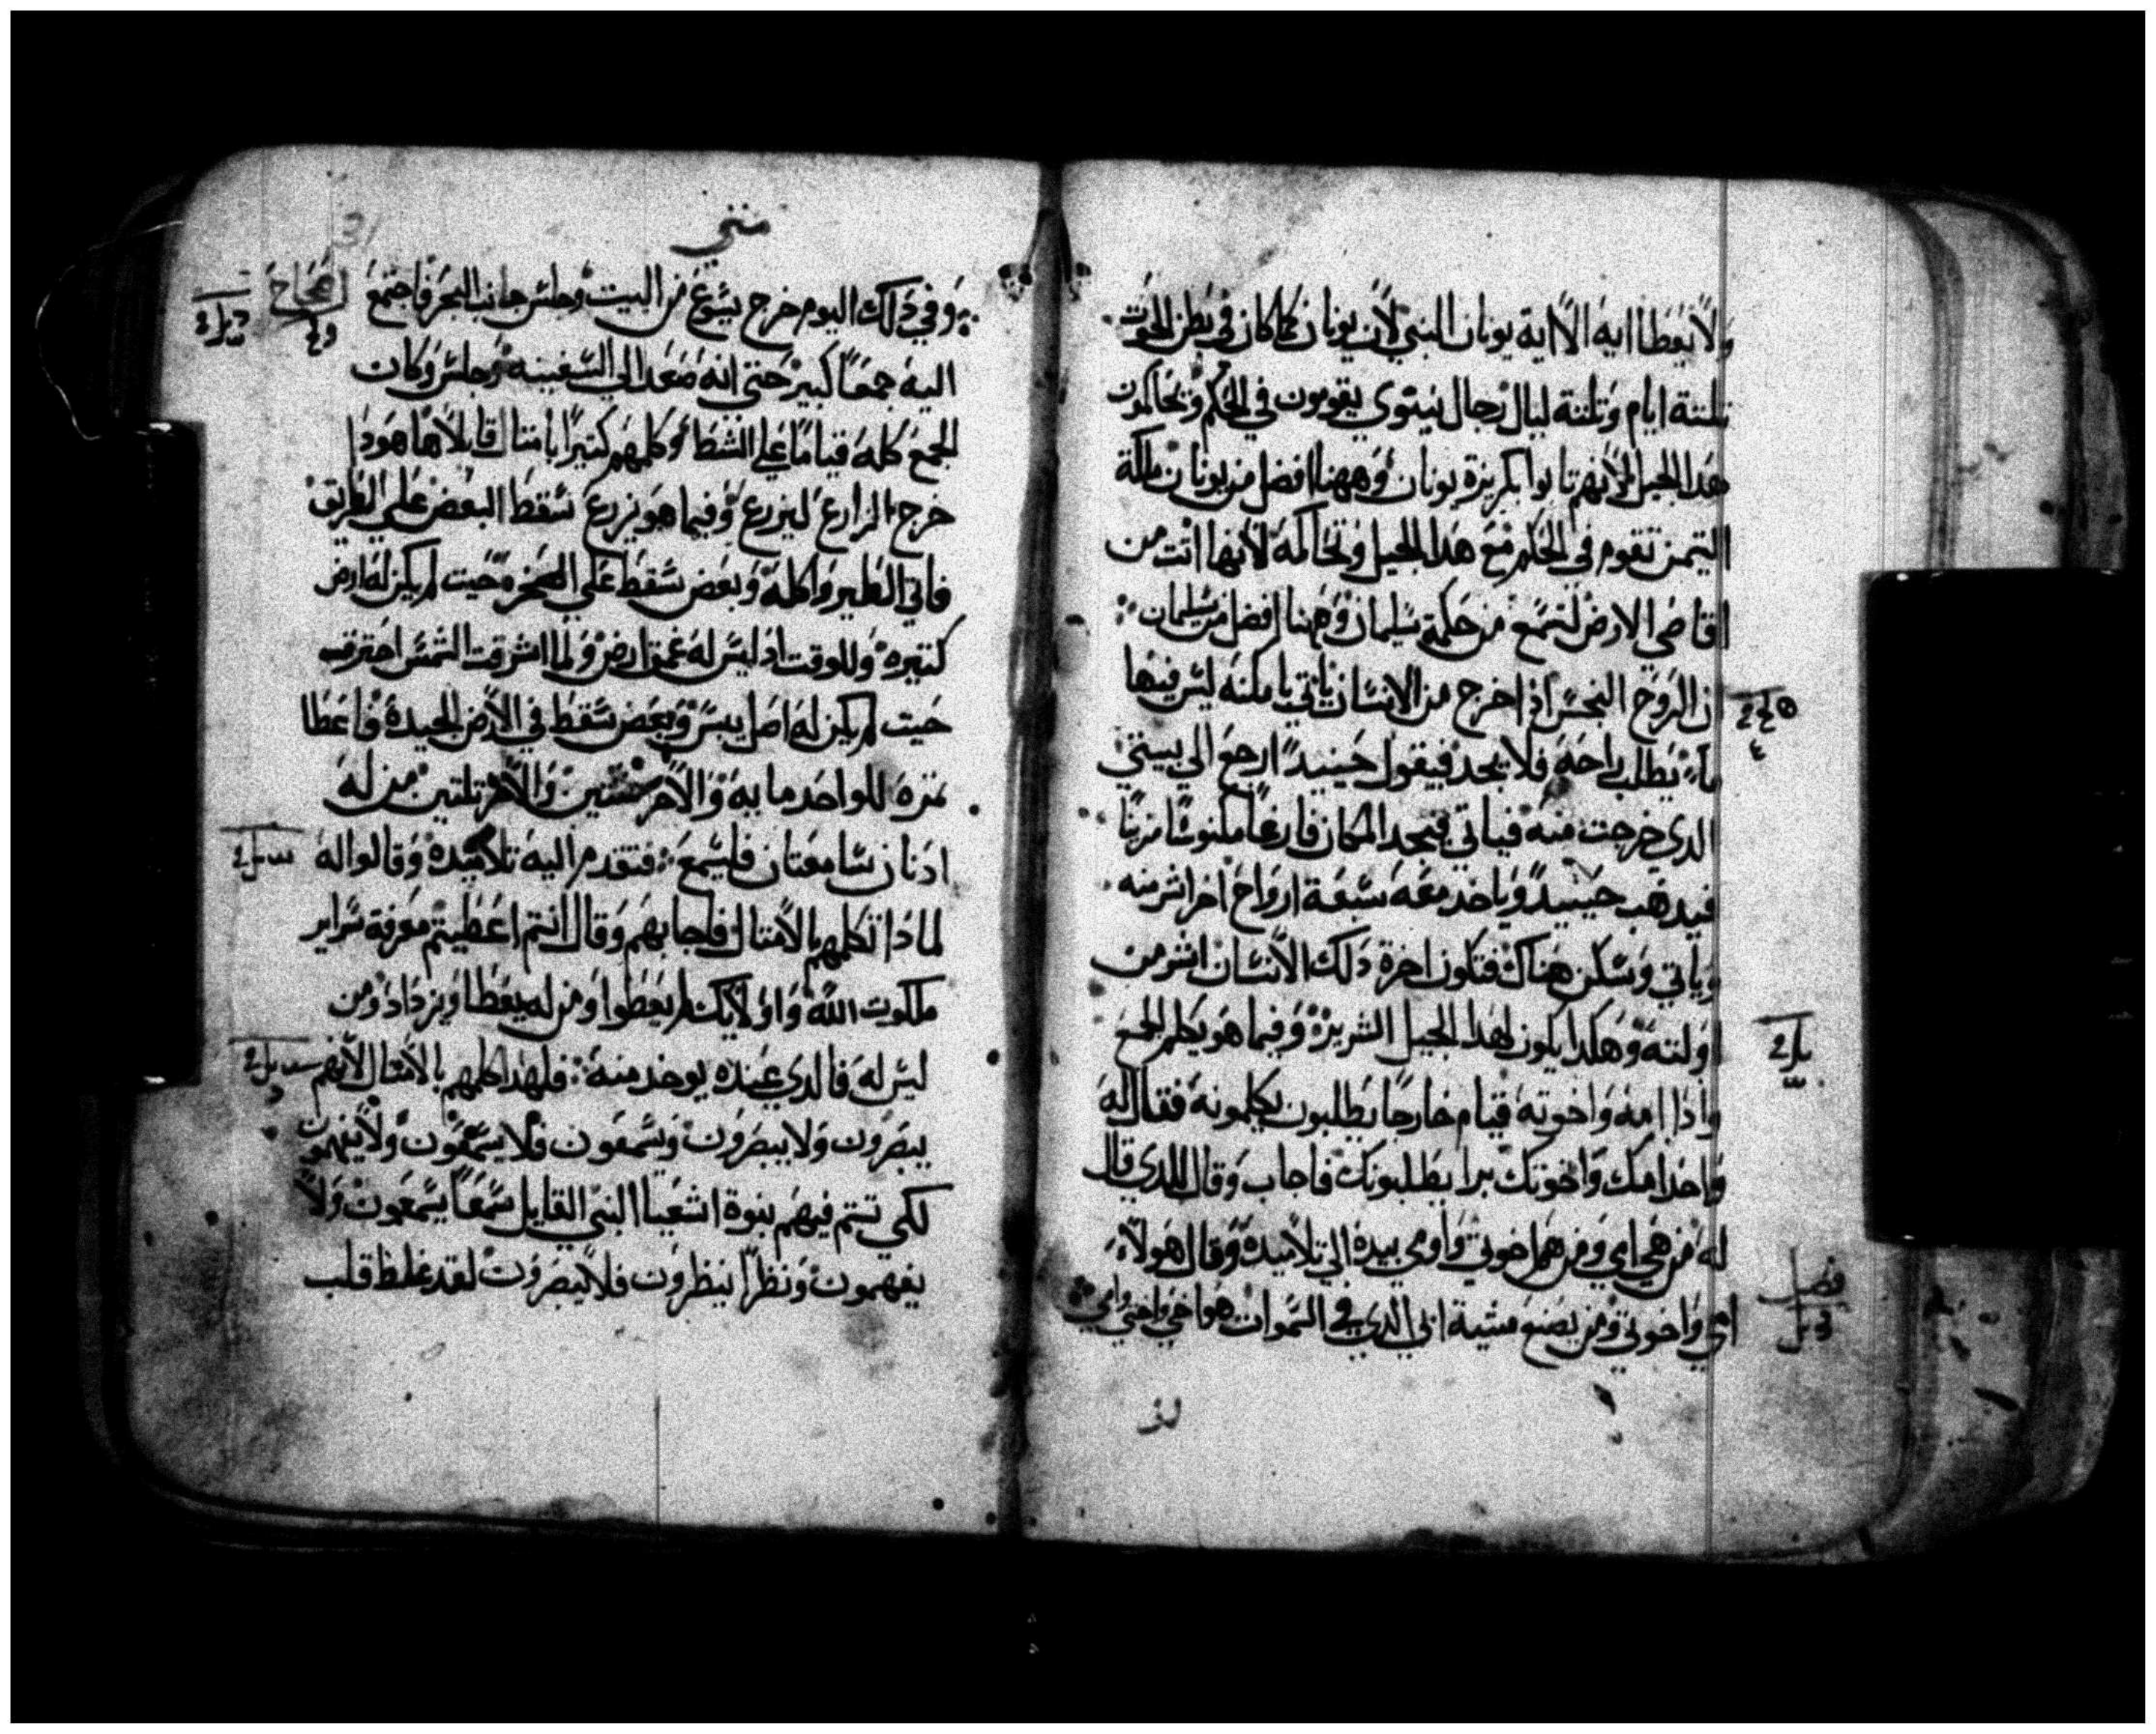 ولا يعطا ايه الا اية يونان النبي لان يونان كما كان في بطن الحوت
تلتة ايام وتلتة ليال رجال نينوي يقومون في الحكم ويحاكمون
هدا الجيل لانهم تابوا بكريزة يونان وههنا افضل من يونان ملكة
التيمن تقوم في الحكم مع هدا الجيل وتحاكمه لانها اتت من
اقاصي الارض لتسمع من حكمة سليمان وههنا افضل من سليمان
ان الروح النجس اذا خرج من الانسان ياتي يا مكنه ليس فيها
ماء يطلب راحه فلا يجد فيقول حينيد ارجع الي بيتي
الدي خرجت منه فياتي فيجد المكان فارغا مكنوسا مزينا
فيدهب حينيد وياخد معه سبعة ارواح اخر اشر منه
وياتي ويسكن هناك فتكون اخرة دلك الانسان اشر من
اولته وهكدا يكون لهدا الجيل الشرير وفيما هو يكلم الجمع
وادا امه واخوته قيام خارجا يطلبون يكلمونه فقال له
واحد امك واخوتك برا يطلبونك فاجاب وقال للدي قال
له من هي امي ومن هم اخوتي واومي بيده الي تلاميده وقال هولاء
امي واخوتي ومن يصنع مشية ابي الدي في السموات هو اخي واختي وامي
فصل
متي
31
وفي دلك اليوم خرج يسوع من البيت وجلس جانب البحر فاجتمع
اصحاح
اليه جمعا كبير حتي انه صعد الي السفينه وجلس وكان
الجمع كله قياما علي الشط وكلمهم كتيرا بامتال قايلا ها هودا
خرج الزارع ليزرع وفيما هو يزرع سقط البعض علي الطريق
فاتي الطير واكله وبعض سقط علي الصخره حيت لم يكن له ارض
كتيره وللوقت اد ليس له عمق ارض ولما اشرقت الشمس احترق
حيت لم يكن له اصل يبس وبعض سقط في الارض الجيدة فاعطا
تمرة للواحد مايه والاخر ستين والاخر تلتين من له
ادنان سامعتان فليسمع فتقدم اليه تلاميده وقالوا له
لمادا تكلمهم بالامتال فاجابهم وقال انتم اعطيتم معرفة سراير
ملكوت الله واوليك لم يعطوا ومن له يعطا ويزداد ومن
ليس له فالدي عنده يوخد منه فلهدا اكلمهم بالامتال لانهم
يبصرون ولا يبصرون ويسمعون فلا يسمعون ولا يفهمون
لكي تتم فيهم بنوة اشعيا النبي القايل سمعا يسمعون ولا
يفهمون ونظرا ينظرون فلا يبصرون لقد غلظ قلب